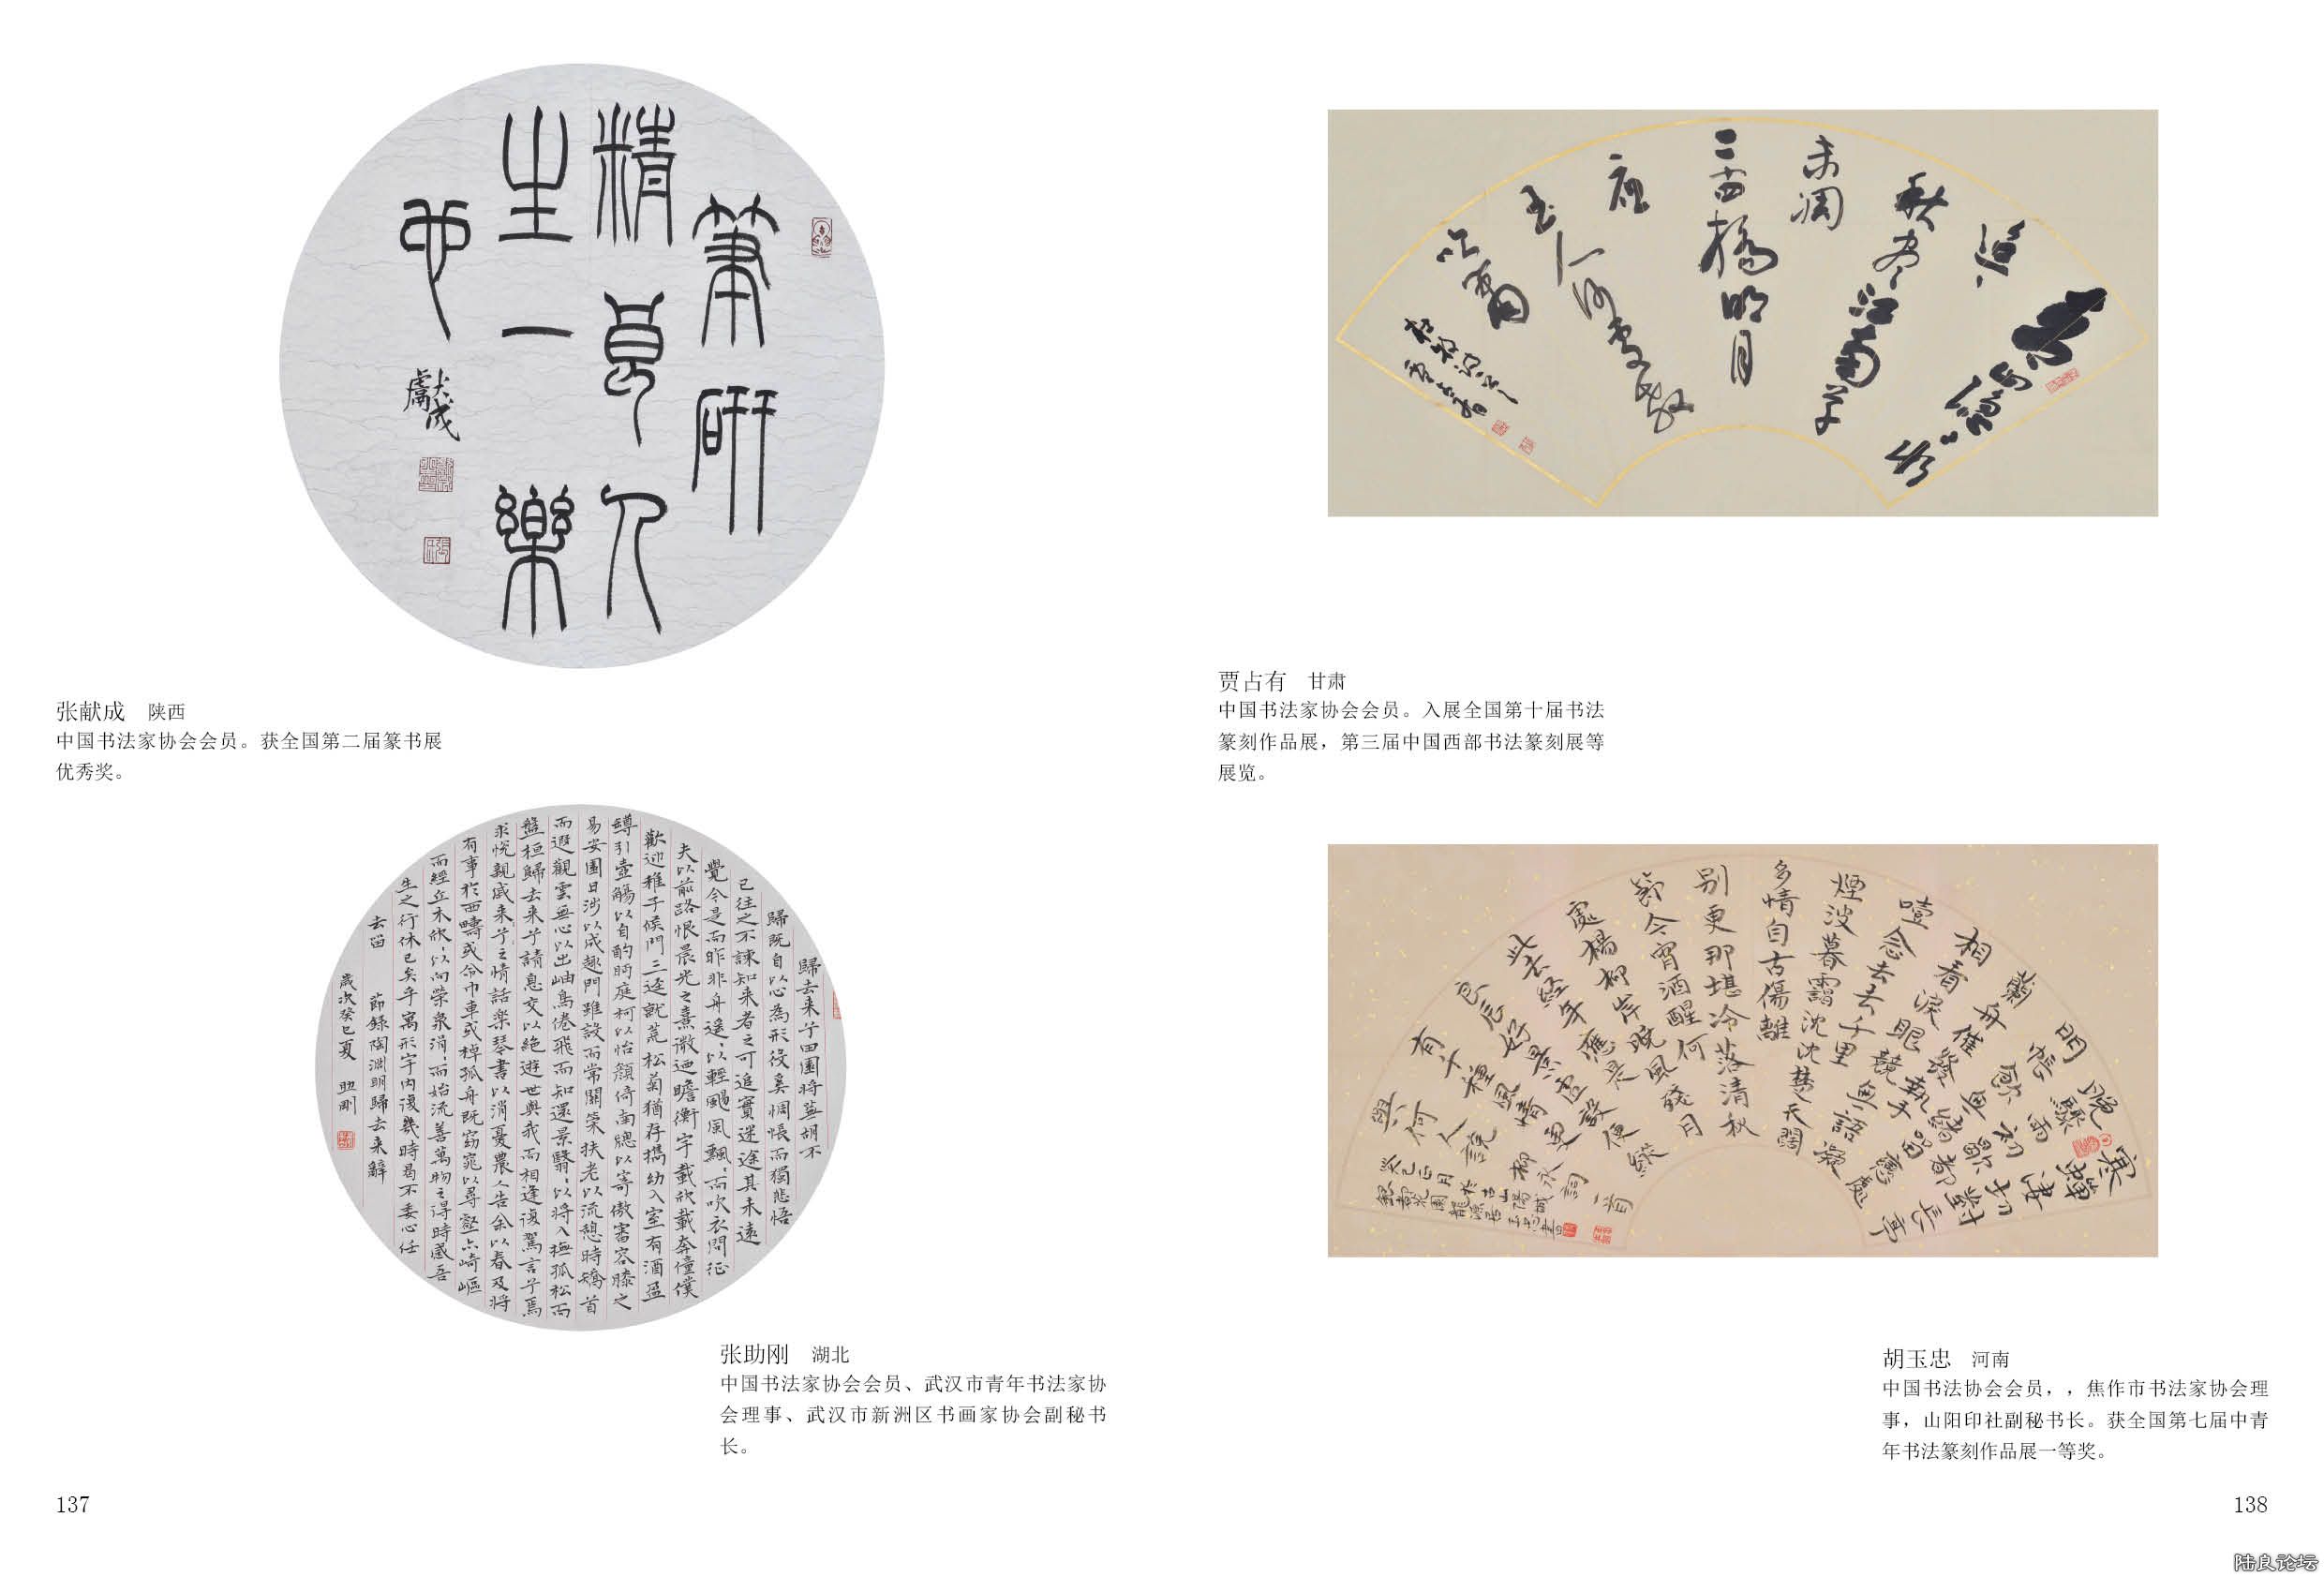 筆研
精良人
生一樂
也
獻成
张献成 陕西
中国书法家协会会员。获全国第二届篆书展
优秀奖。
歸去来兮田園将蕪胡不
歸既自以心為形役奚惆悵而獨悲悟
已往之不諫知来者之可追實迷途其未遠
覺今是而昨非舟遥、以輕颺風飄、而吹衣問征
夫以前路恨晨光之熹微迺瞻衡宇載欣載奔僮僕
歡迎稚子候門三逕就荒松菊猶存携幼入室有酒盈
罇引壺觴以自酌眄庭柯以怡顔倚南牕以寄傲審容膝之
易安園日涉以成趣門雖設而常關策扶老以流憩時矯首
而遐觀雲無心以出岫鳥倦飛而知還景翳、以将入撫孤松而
盤桓歸去来兮請息交以絶遊世與我而相逢復駕言兮焉
求悦親戚来兮之情話楽琴書以消憂農人告余以春及将
有事於西疇或命巾車或棹孤舟既窈窕以尋壑亦崎嶇
而經丘木欣、以向榮泉涓、而始流善萬物之得時感吾
生之行休已矣乎寓形宇内復幾時曷不委心任
去留 節録陶淵明歸去来辭
歲次癸巳夏 助剛
张助刚 湖北
中国书法家协会会员、武汉市青年书法家协
会理事、武汉市新洲区书画家协会副秘书
长。
137
青山隱、水
迢、
秋尽江南草
未凋
二十四橋明月
夜
玉人何處教
吹簫
杜牧詩一
贾占有 甘肃
中国书法家协会会员。入展全国第十届书法
篆刻作品展，第三届中国西部书法篆刻展等
展览。
寒蟬淒切對長亭
晚驟雨初歇都
門帳飲無緒留戀處
蘭舟催發執手
相看淚眼競無語凝
噎念去去千里
煙波暮靄沈沈楚天闊
多情自古傷離
別更那堪冷落清秋
節今宵酒醒何
處楊柳岸晚風殘月
此去經年應是
良辰好景虛設便縱
有千種風情更
與何人說 柳永詞一首
癸巳正月於古山陽城
花園龍源居玉忠書
胡玉忠 河南
中国书法协会会员，，焦作市书法家协会理
事，山阳印社副秘书长。获全国第七届中青
年书法篆刻作品展一等奖。
138
陆良论坛